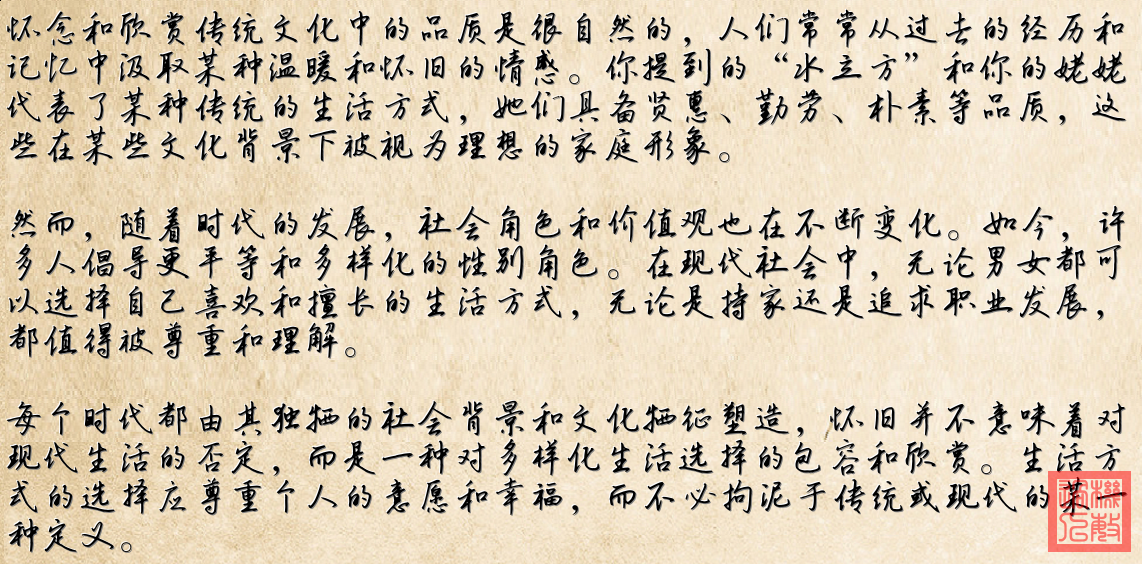 怀念和欣赏传统文化中的品质是很自然的，人们常常从过去的经历和
记忆中汲取某种温暖和怀旧的情感。你提到的“水立方”和你的姥姥
代表了某种传统的生活方式，她们具备贤惠、勤劳、朴素等品质，这
些在某些文化背景下被视为理想的家庭形象。
然而，随着时代的发展，社会角色和价值观也在不断变化。如今，许
多人倡导更平等和多样化的性别角色。在现代社会中，无论男女都可
以选择自己喜欢和擅长的生活方式，无论是持家还是追求职业发展，
都值得被尊重和理解。
每个时代都由其独牺的社会背景和文化牺征塑造，怀旧并不意味着对
现代生活的否定，而是一种对多样化生活选择的包容和欣赏。生活方
式的选择应尊重个人的意愿和幸福，而不必拘泥于传统或现代的某一
种定义。